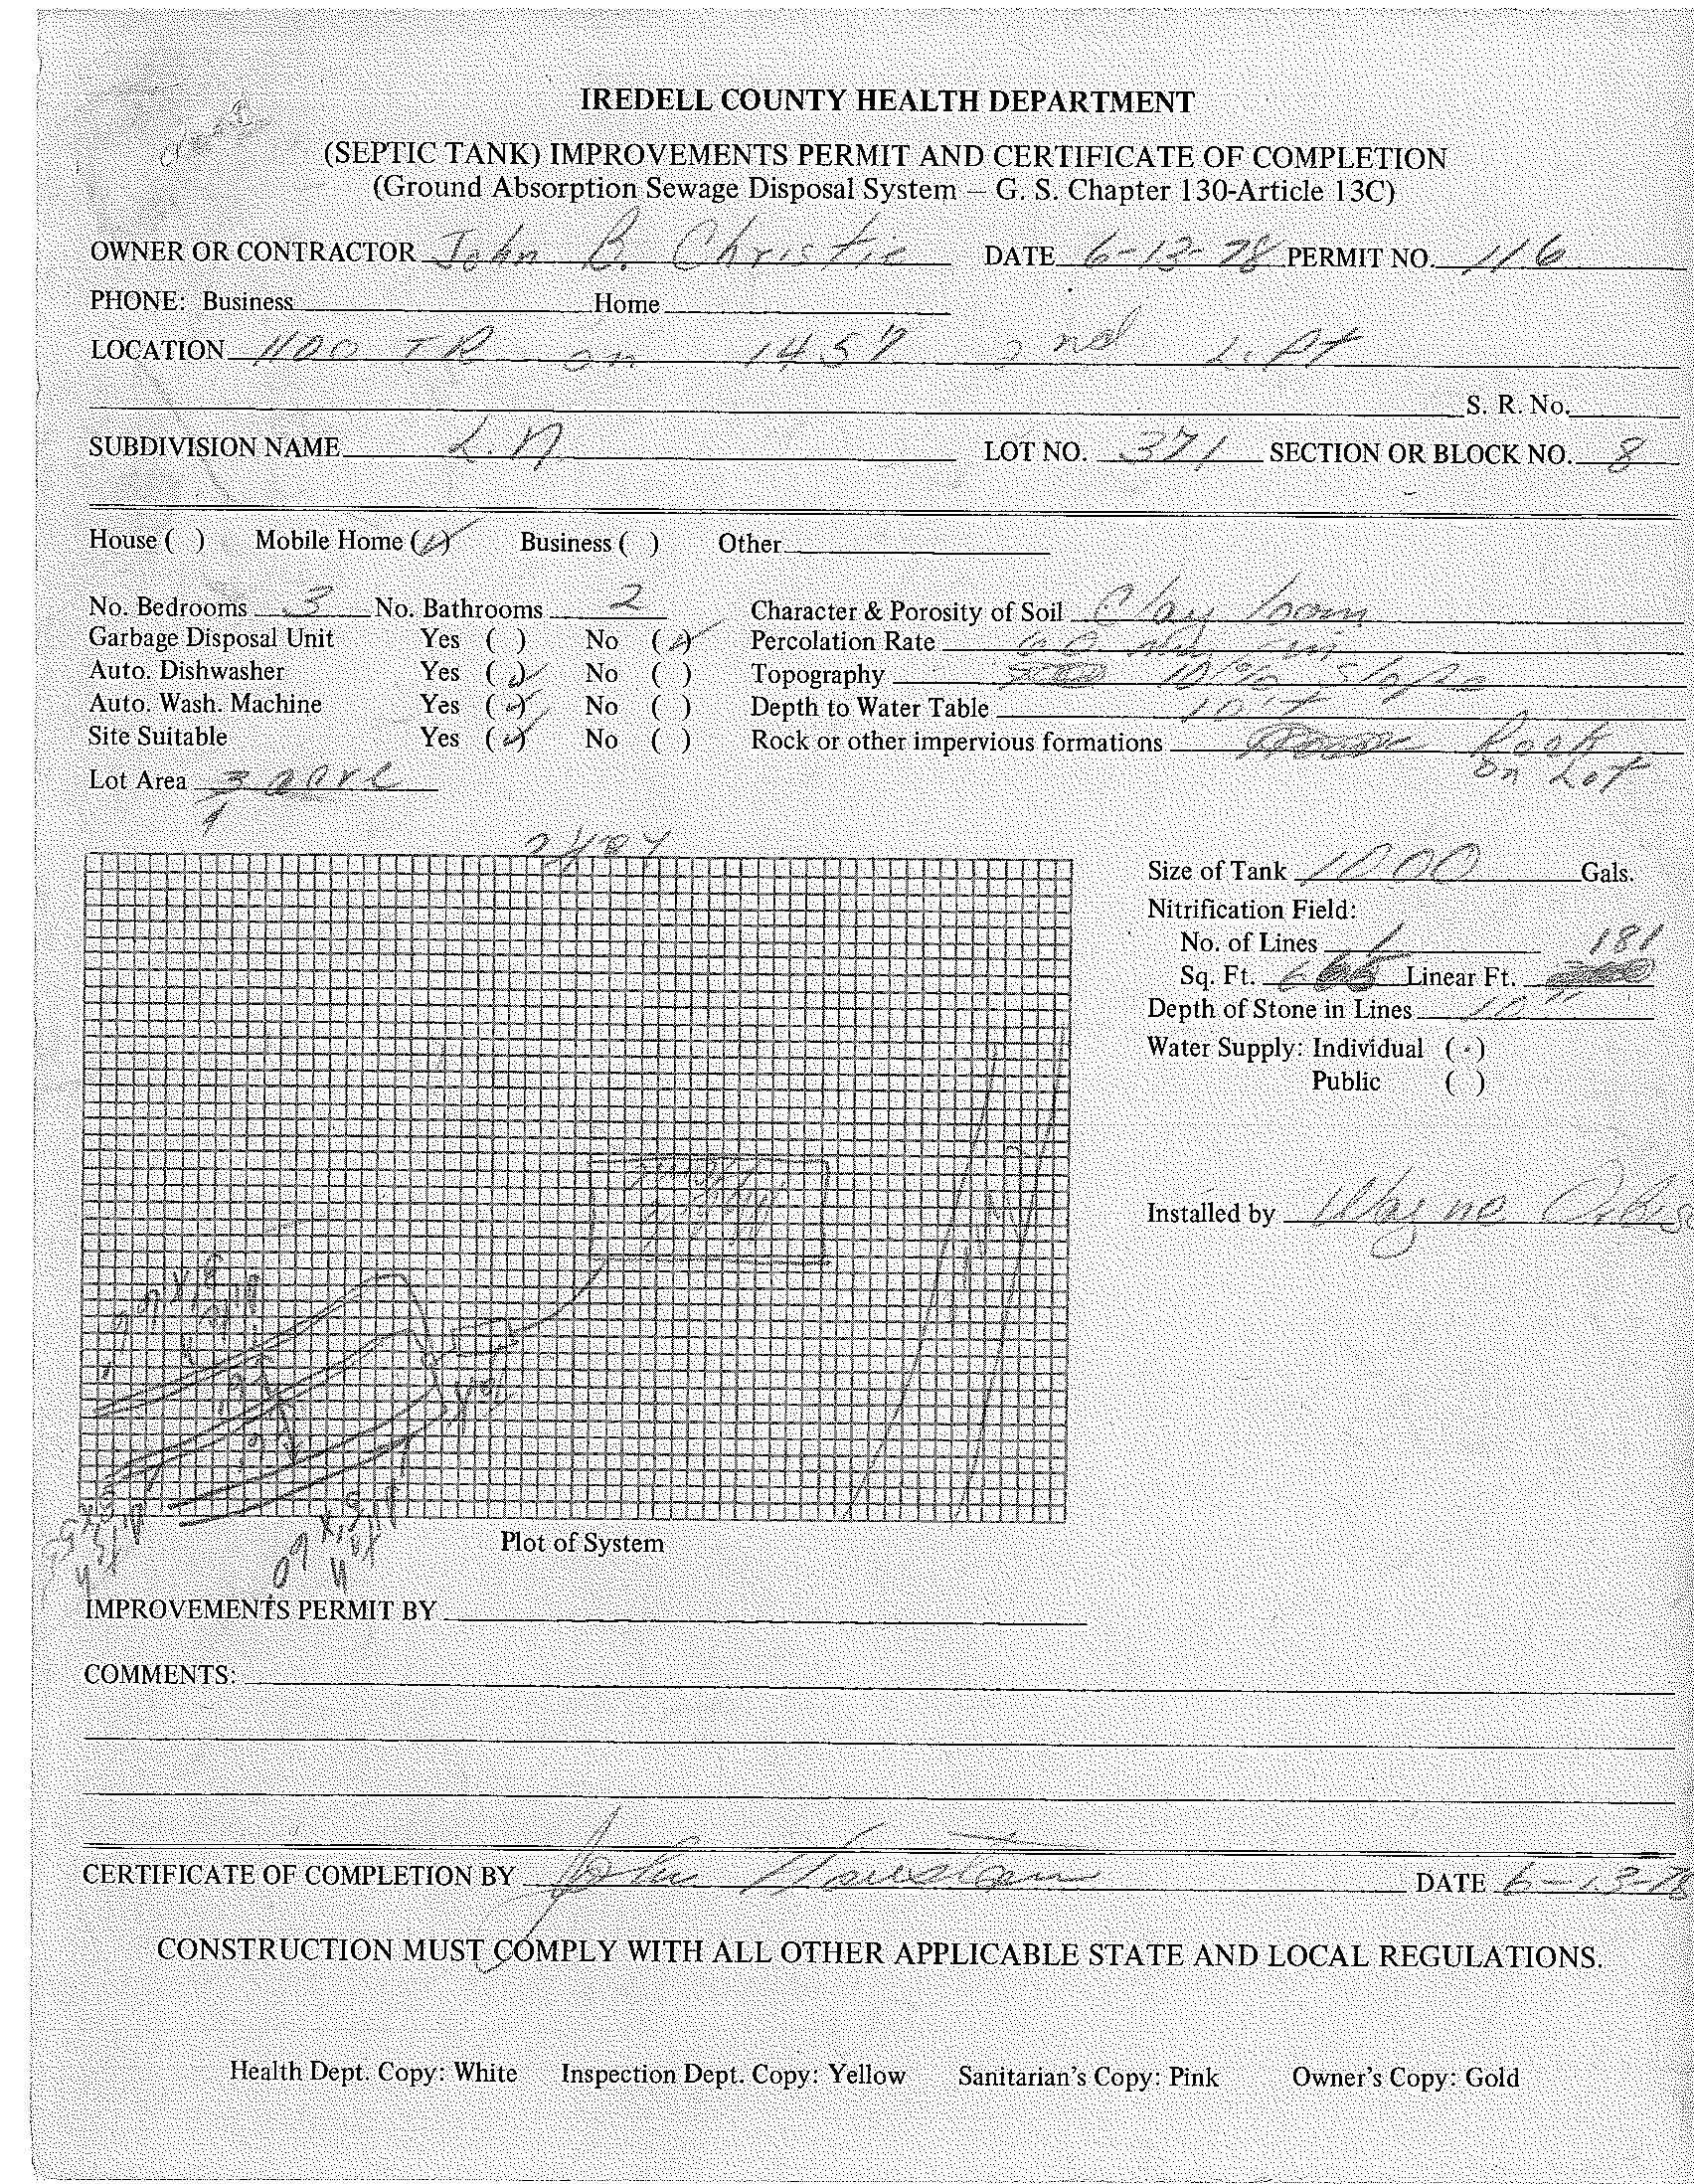 IREDELL COUNTY HEALTH DEPARTMENT
(SEPTIC TANK) IMPROVEMENTS PERMIT AND CERTIFICATE OF COMPLETION
(Ground Absorption Sewage Disposal System – G. S. Chapter 130-Article 13C)
OWNER OR CONTRACTOR John B. Christie DATE 6-12-78 PERMIT NO. 116
PHONE: Business Home
LOCATION 1100 TR on 1457 2nd Lift
S. R. No.
SUBDIVISION NAME L.N LOT NO. 371 SECTION OR BLOCK NO. 8
House ( ) Mobile Home (✓) Business ( ) Other
No. Bedrooms 3 No. Bathrooms 2 Character & Porosity of Soil Clay loam
Garbage Disposal Unit Yes ( ) No (✓) Percolation Rate 60 min
Auto. Dishwasher Yes (✓) No ( ) Topography 10% Slope
Auto. Wash. Machine Yes (✓) No ( ) Depth to Water Table 10 +
Site Suitable Yes (✓) No ( ) Rock or other impervious formations Rock
on Lot
Lot Area acre
Size of Tank 1000 Gals.
Nitrification Field:
No. of Lines 1 181
Sq. Ft. Linear Ft.
Depth of Stone in Lines
Water Supply: Individual (·)
Public ( )
Installed by Wayne
Plot of System
IMPROVEMENTS PERMIT BY
COMMENTS:
CERTIFICATE OF COMPLETION BY John DATE 6-13-78
CONSTRUCTION MUST COMPLY WITH ALL OTHER APPLICABLE STATE AND LOCAL REGULATIONS.
Health Dept. Copy: White Inspection Dept. Copy: Yellow Sanitarian's Copy: Pink Owner's Copy: Gold